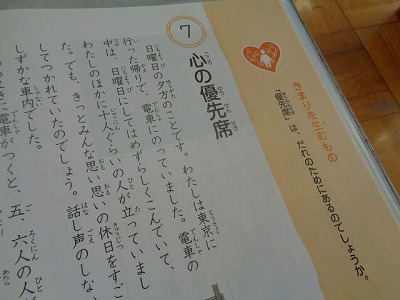 きまりを生むもの
「優先席」は、だれのためにあるのでしょうか。
7
心の優先席
日曜日の夕方のことです。わたしは東京に
行った帰りで、電車にのっていました。電車の
中は、日曜日にしてはめずらしくこんでいて、
わたしのほかに十人くらいの人が立っていまし
た。でも、きっとみんな思い思いの休日をすご
してつかれていたのでしょう。話し声のしない
しずかな車内でした。
きに電車がつくと、五、六人の人